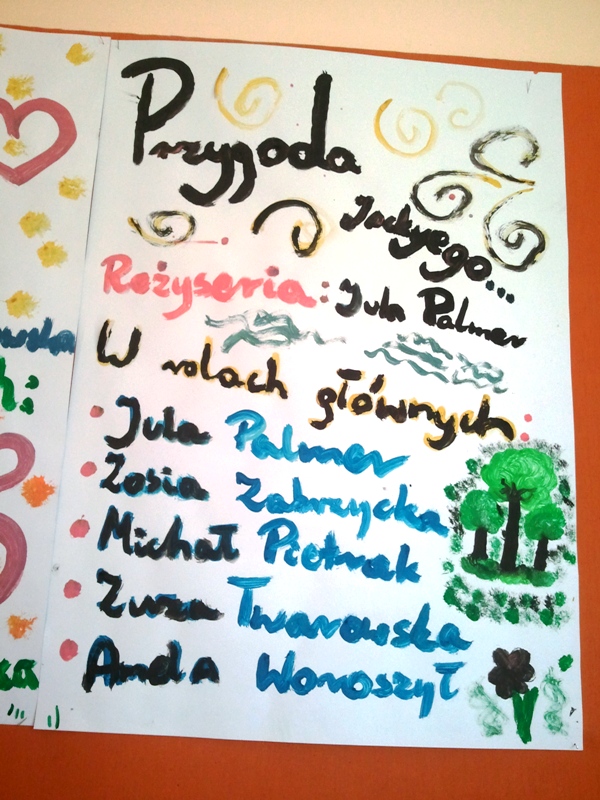 Przygoda
Jadyego...
Reżyseria: Jula Palmer
W rolach głównych:
Jula Palmer
Zosia Zabrzycka
Michał Pietrzak
Zuza Twarowska
Amela Woroszył
wska
h: